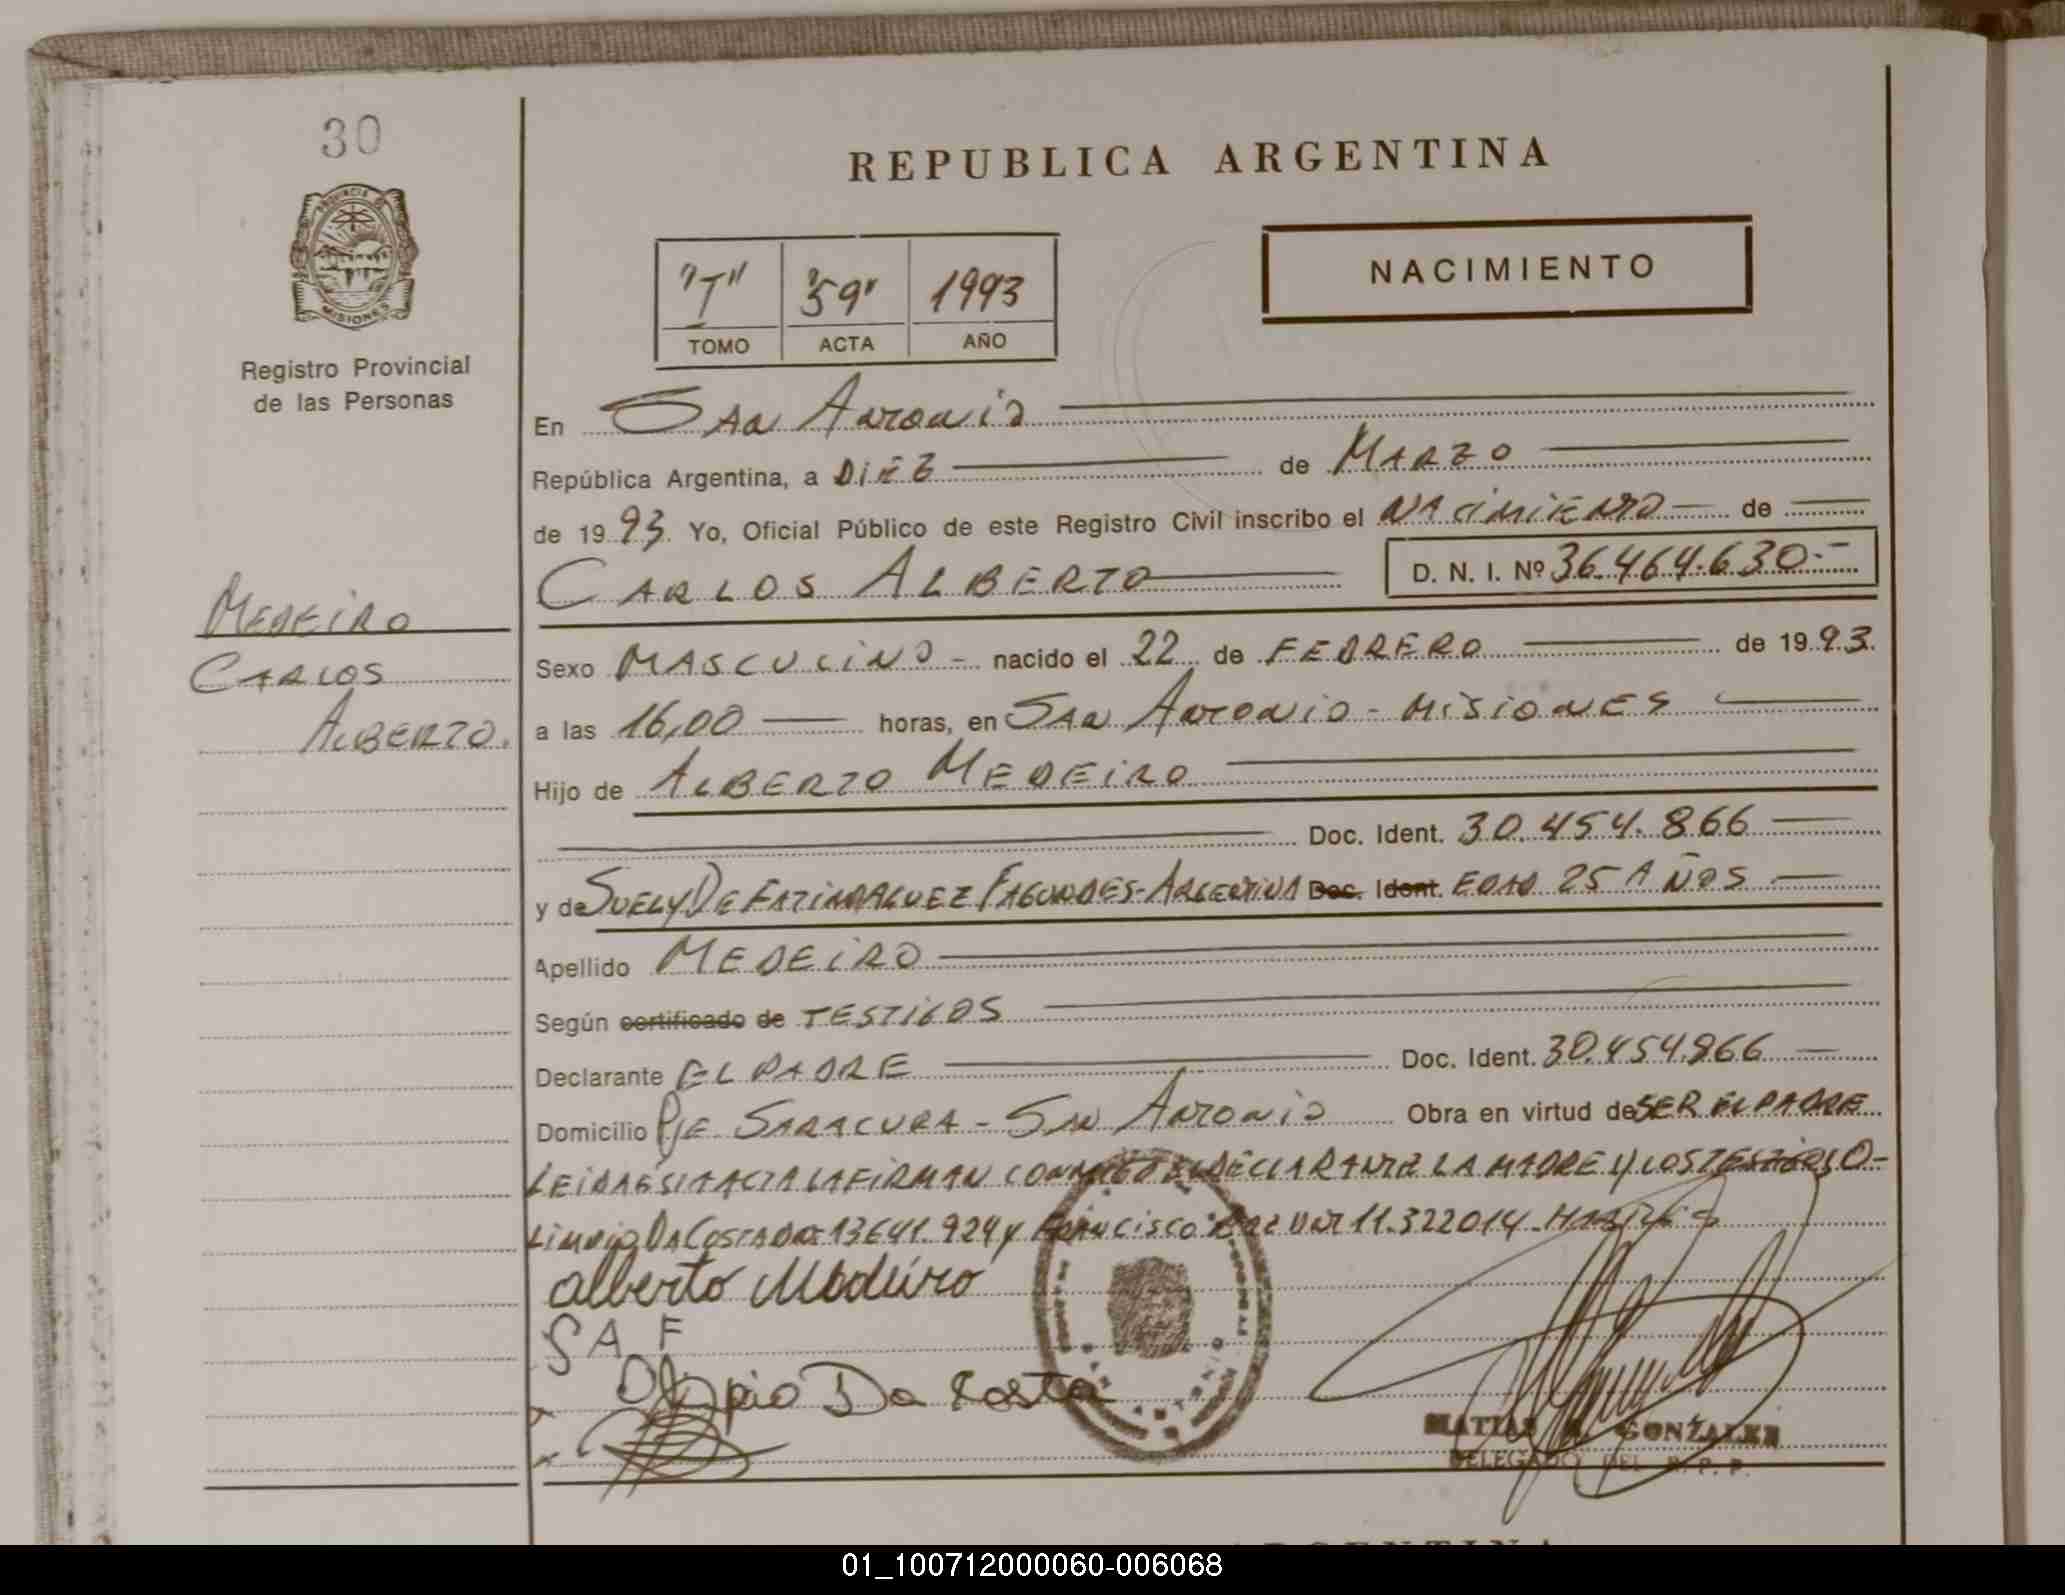 30
PROVINCIA DE
MISIONES
Registro Provincial
de las Personas
REPUBLICA ARGENTINA
"T" "59" 1993
TOMO ACTA AÑO
NACIMIENTO
En San Antonio
República Argentina, a DIEZ de MARZO
de 1993. Yo, Oficial Público de este Registro Civil inscribo el NACIMIENTO de
CARLOS ALBERTO D. N. I. Nº 36.464.630.-
MEDEIRO
CARLOS
ALBERTO.
Sexo MASCULINO - nacido el 22 de FEBRERO de 1993.
a las 16,00 horas, en SAN ANTONIO - MISIONES
Hijo de ALBERTO MEDEIRO
Doc. Ident. 30.454.866
y de SUELY DE FATIMA FAGUNDES - ARGENTINA Doc. Ident. EDAD 25 AÑOS
Apellido MEDEIRO
Según certificado de TESTIGOS
Declarante EL PADRE Doc. Ident. 30.454.866
Domicilio Pje SARACURA - SAN ANTONIO Obra en virtud de SER EL PADRE
LEIDA ESTA ACTA LA FIRMAN CONMIGO EL DECLARANTE LA MADRE Y LOS TESTIGOS O-
DA COSTA 13641.924 y FRANCISCO 11.322014
Alberto Medeiro
S A F
Olimpio Da Costa
MATIAS GONZALEZ
DELEGADO DEL R. P. P.
ARGENTINA
01_100712000060-006068